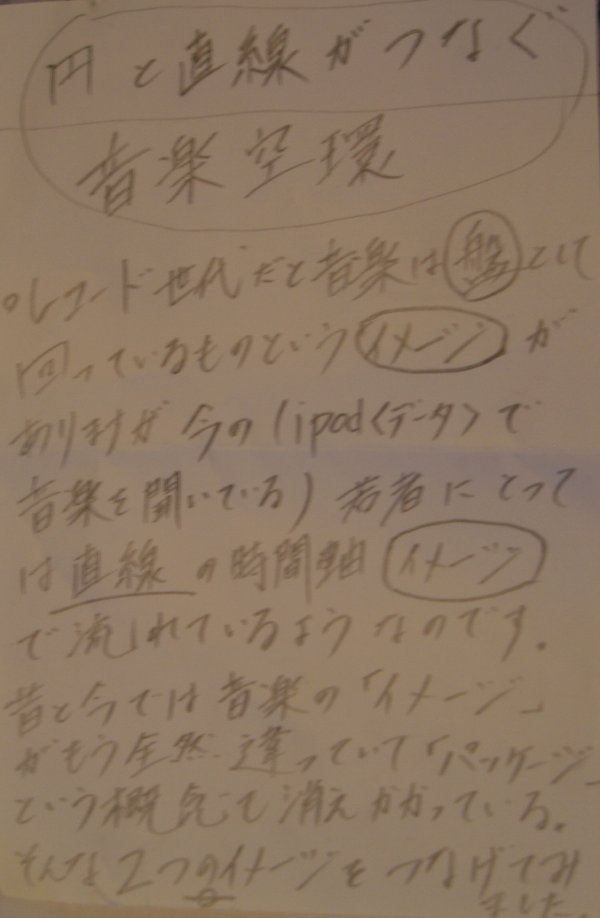 円と直線がつなぐ
音楽空環
。レコード世代だと音楽は盤として
回っているものというイメージが
ありますが今の(ipod<データ>で
音楽を聞いている)若者にとって
は直線の時間軸イメージ
で流れているようなのです。
昔と今では音楽の「イメージ」
がもう全然違っていて「パッケージ」
という概念も消えかかっている。
そんな2つのイメージをつなげてみ
ました。